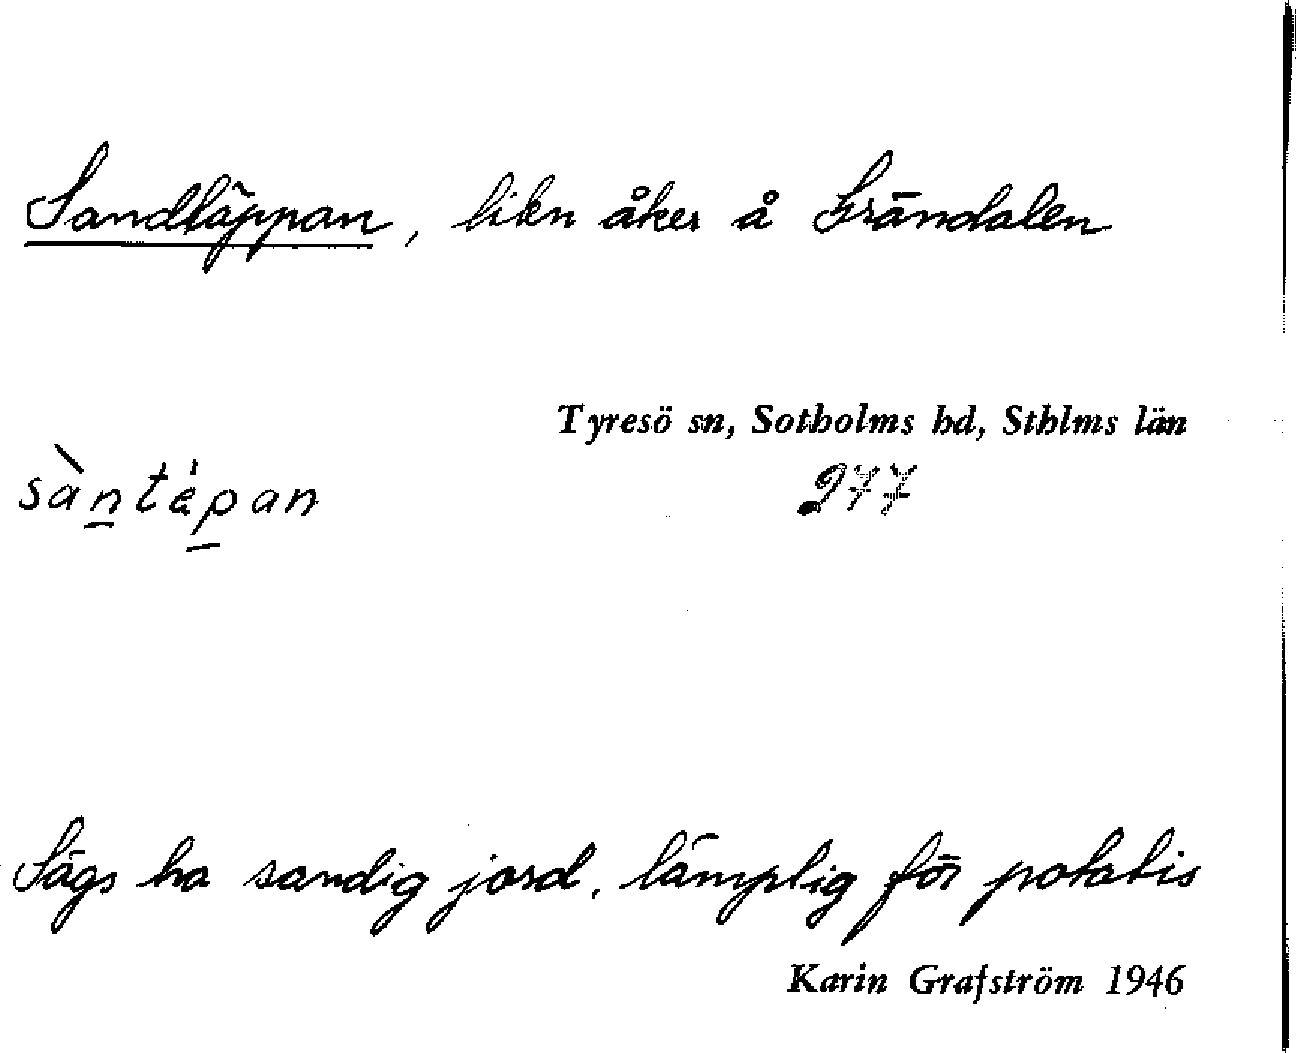 Sandtäppan, liten åker å Grändalen
Tyresö sn, Sotholms hd, Sthlms län
277
Sägs ha sandig jord, lämplig för potatis
Karin Grafström 1946